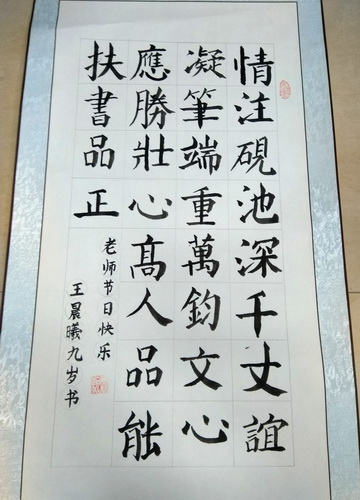 情注硯池深千丈誼
凝筆端重萬鈞文心
應勝壯心髙人品能
扶書品正
老师节日快乐
王晨曦九岁书